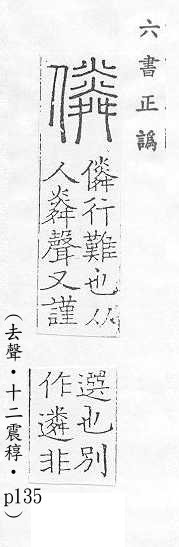 六書正譌
僯
僯行難也从
人粦聲又謹
選也別
作遴非
（去聲・十二震稕・p135）